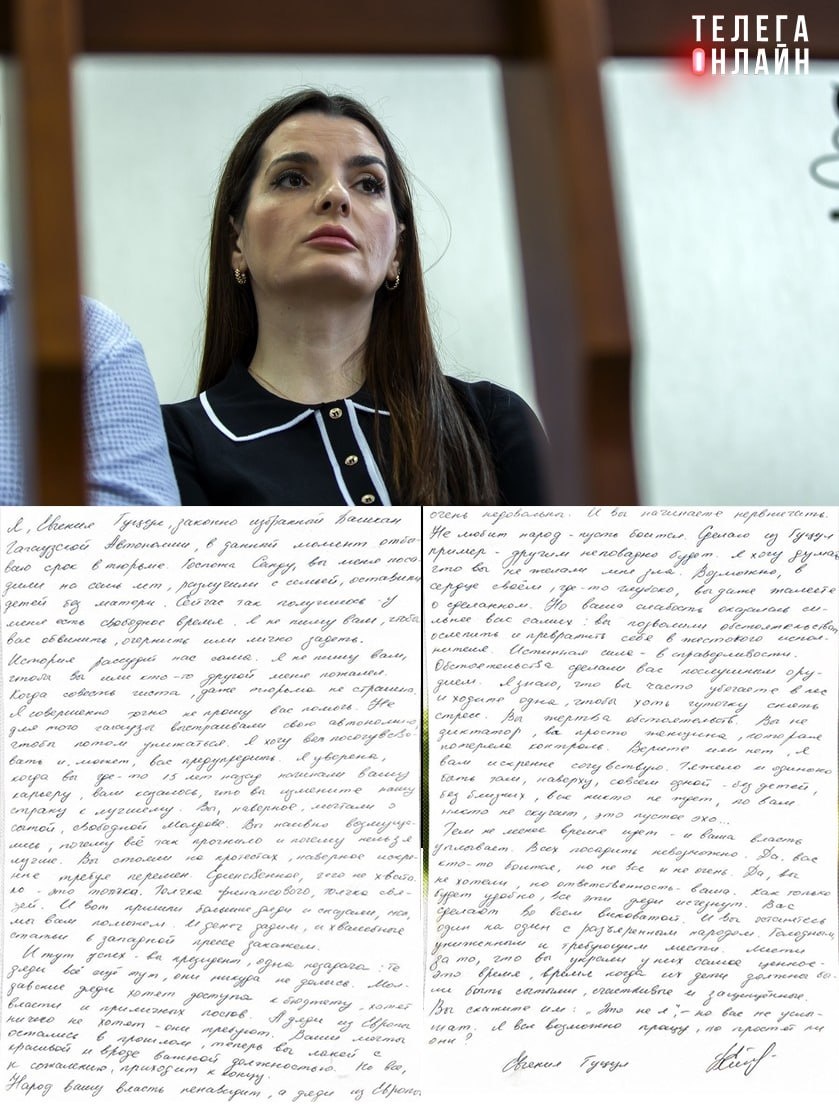 ТЕЛЕГА
ОНЛАЙН
Я, Евгения Гуцул, законно избранный Башкан
Гагаузской Автономии, в данный момент отбы-
ваю срок в тюрьме. Госпожа Санду, вы меня поса-
дили на семь лет, разлучили с семьёй, оставили
детей без матери. Сейчас так получилось - у
меня есть свободное время. Я не пишу вам, чтобы
вас обвинить, очернить или лично задеть.
История рассудит нас сама. Я не пишу вам,
чтобы вы или кто-то другой меня пожалел.
Когда совесть чиста, даже тюрьма не страшна.
Я совершенно точно не прошу вас помочь. Не
для того гагаузы выстраивали свою автономию,
чтобы потом унижаться. Я хочу вам посочувство-
вать и, может, вас предупредить. Я уверена,
когда вы где-то 15 лет назад начинали вашу
карьеру, вам казалось, что вы измените нашу
страну к лучшему. Вы, наверное, мечтали о
сытой, свободной Молдове. Вы наивно возмуща-
лись, почему всё так прогнило и почему нельзя
лучше. Вы стояли на протестах, наверное искре-
нне требуя перемен. Единственное, чего не хвата-
ло - это толчка. Толчка финансового, толчка свя-
зей. И вот пришли большие дяди и сказали,
мы вам поможем. И денег дадим, и хвалебные
статьи в западной прессе закажем.
И тут успех - вы президент, одна незадача: те
дяди всё ещё тут, они никуда не делись. Мол-
давские дяди хотят доступа к бюджету, хотят
власти и приличных постов. А дяди из Европы
ничего не хотят - они требуют. Ваши мечты
остались в прошлом, теперь вы лакей с
красивой и вроде важной должностью. Но все,
к сожалению, приходит к концу.
Народ вашу власть ненавидит, а дяди из Европы
очень недовольны. И вы начинаете нервничать.
Не любит народ - пусть боится. Сделаю из Гуцул
пример - другим неповадно будет. Я хочу думать,
что вы не желали мне зла. Возможно, в
сердце своём, где-то глубоко, вы даже жалеете
о сделанном. Но ваша слабость оказалась си-
льнее вас самих: вы позволили обстоятельствам
ослепить и превратить себя в жестокого испол-
нителя. Истинная сила - в справедливости.
Обстоятельства сделали вас послушным ору-
дием. Я знаю, что вы часто убегаете в лес
и ходите одна, чтобы хоть чуточку снять
стресс. Вы жертва обстоятельств. Вы не
диктатор, вы просто женщина, которая
потеряла контроль. Верите или нет, я
вам искренне сочувствую. Тяжело и одиноко
быть там, наверху, совсем одной - без детей,
без близких, вас никто не ждет, по вам
никто не скучает, это пустое эхо...
Тем не менее время идет - и ваша власть
уплывает. Всех посадить невозможно. Да, вас
кто-то боится, но не все и не очень. Да, вы
не хотели, но ответственность - ваша. Как только
будет удобно, все эти дяди исчезнут. Вас
сделают во всем виноватой. И вы останетесь
один на один с разъяренным народом. Голодным,
униженным и требующим мести. Мести
за то, что вы украли у них самое ценное -
это время, время когда их дети должны бы-
ли быть сытыми, счастливые и защищённые.
Вы скажите им: "Это не я", - но вас не услы-
шат. Я вас возможно прощу, но простят ли
они?
Евгения Гуцул